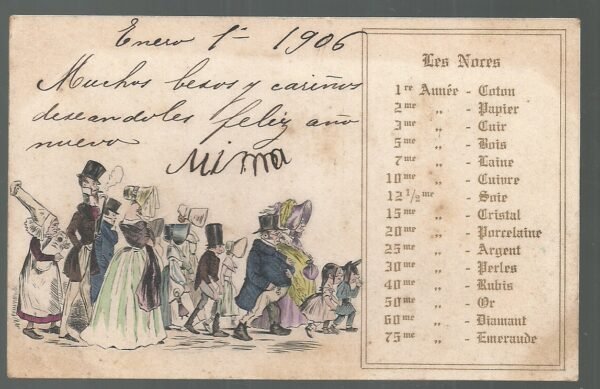 Enero 1º 1906
Muchos besos y cariños
deseandoles feliz año
nuevo
Mima
Les Noces
1re Année - Coton
2me „ - Papier
3me „ - Cuir
5me „ - Bois
7me „ - Laine
10me „ - Cuivre
12 1/2me „ - Soie
15me „ - Cristal
20me „ - Porcelaine
25me „ - Argent
30me „ - Perles
40me „ - Rubis
50me „ - Or
60me „ - Diamant
75me „ - Emeraude